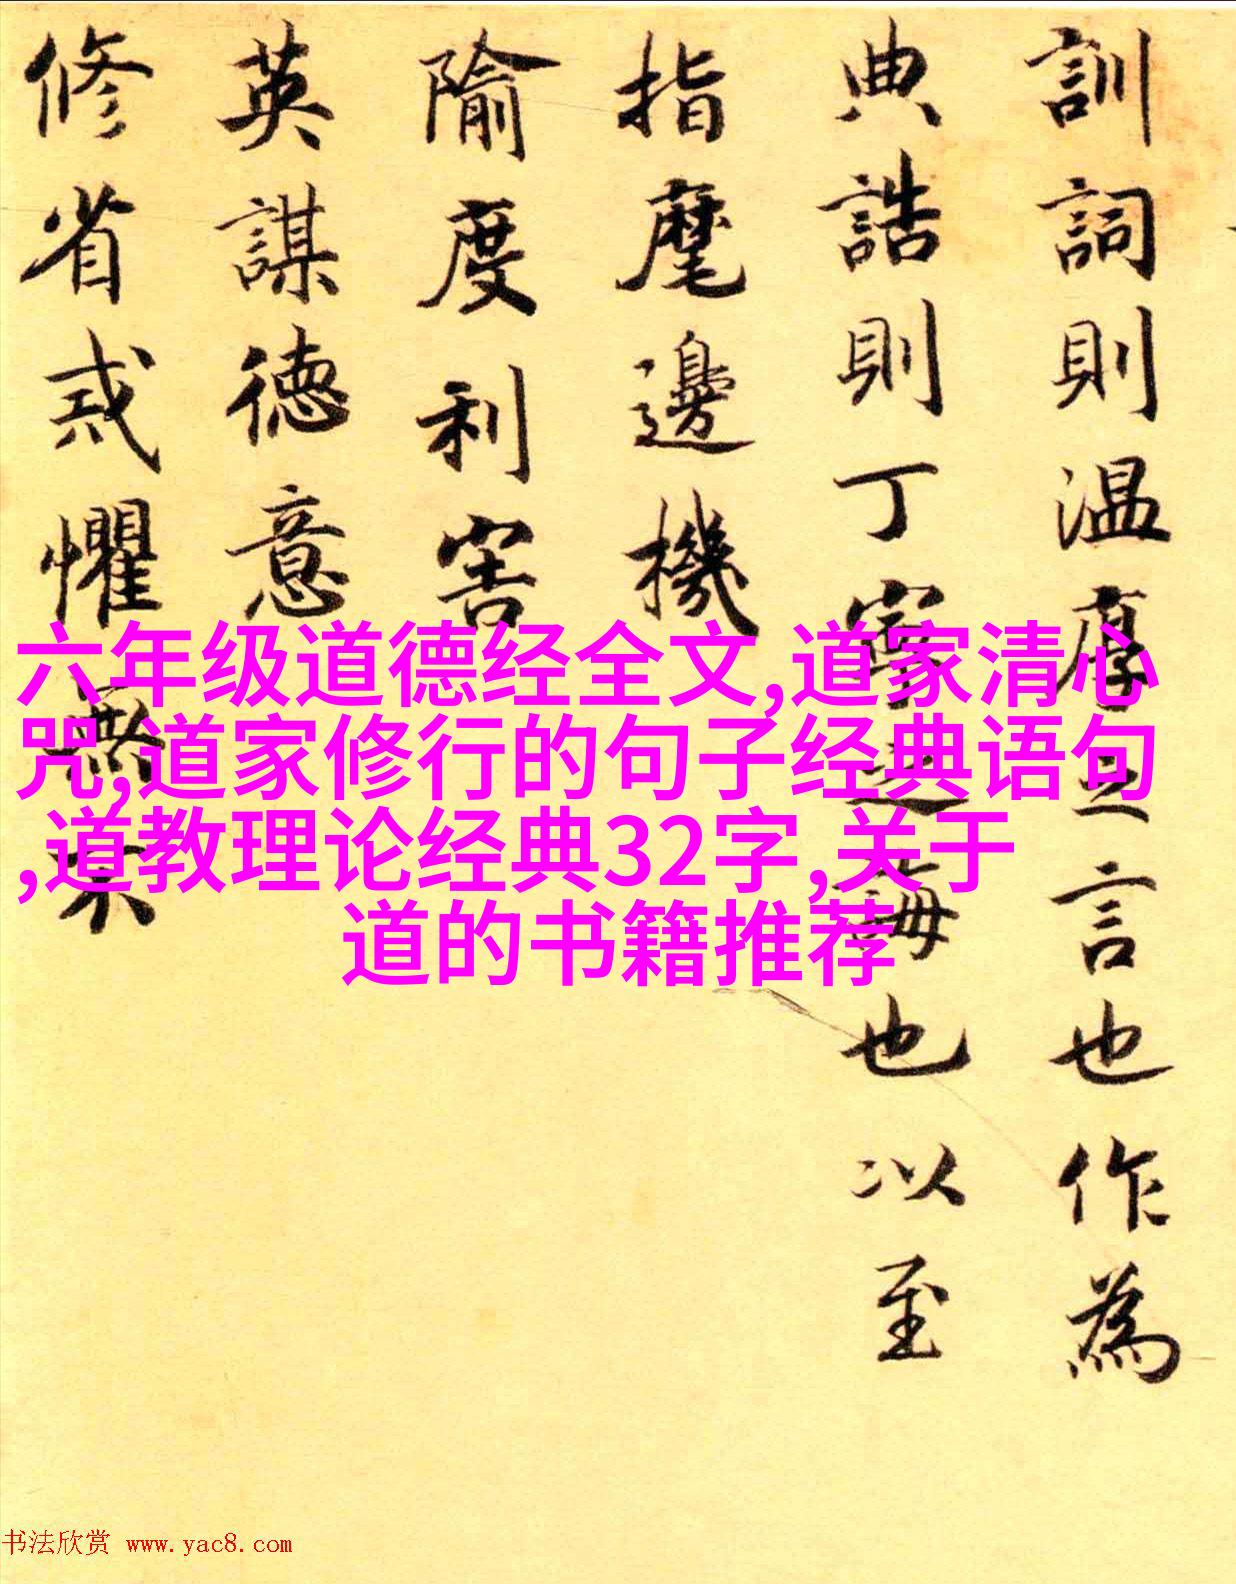 訓詞則温厚之言也作為
典誥則丁寧之誨也以至
指麾邊機
隃度利害
英謀德意
修省戒懼無不
六年级道德经全文,道家清心
咒,道家修行的句子经典语句
,道教理论经典32字,关于
道的书籍推荐
书法欣赏 www.yac8.com